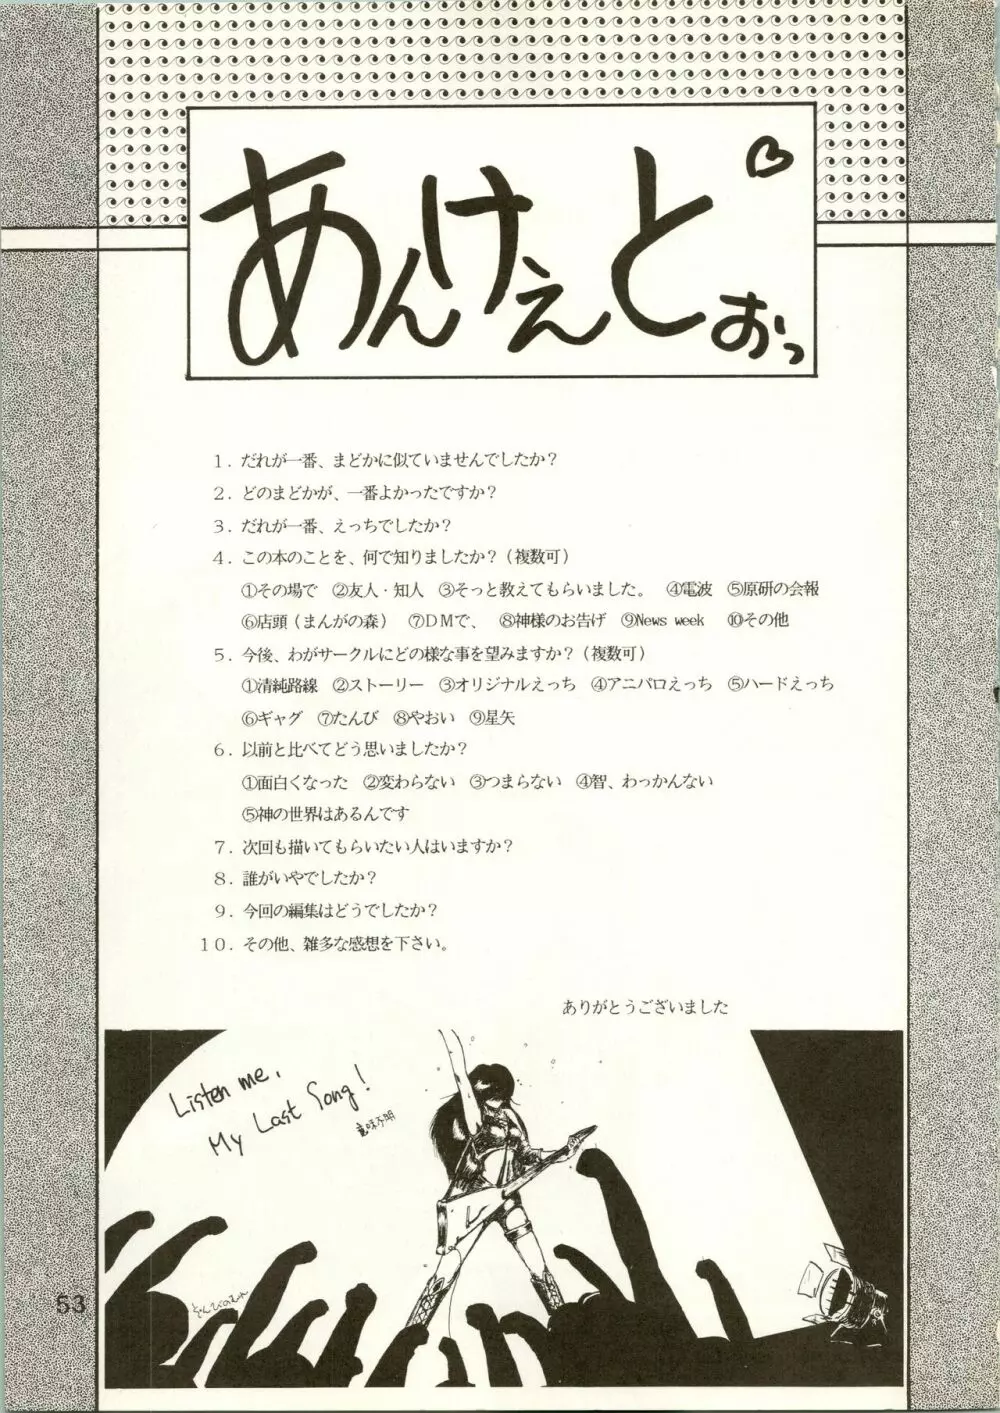 あんけぇとぉっ
1．だれが一番、まどかに似ていませんでしたか？
2．どのまどかが、一番よかったですか？
3．だれが一番、えっちでしたか？
4．この本のことを、何で知りましたか？（複数可）
①その場で　②友人・知人　③そっと教えてもらいました。　④電波　⑤原研の会報
⑥店頭（まんがの森）　⑦ＤＭで、　⑧神様のお告げ　⑨News week　⑩その他
5．今後、わがサークルにどの様な事を望みますか？（複数可）
①清純路線　②ストーリー　③オリジナルえっち　④アニパロえっち　⑤ハードえっち
⑥ギャグ　⑦たんび　⑧やおい　⑨星矢
6．以前と比べてどう思いましたか？
①面白くなった　②変わらない　③つまらない　④智、わっかんない
⑤神の世界はあるんです
7．次回も描いてもらいたい人はいますか？
8．誰がいやでしたか？
9．今回の編集はどうでしたか？
10．その他、雑多な感想を下さい。
ありがとうございました
Listen me,
My Last Song!
意味不明
53